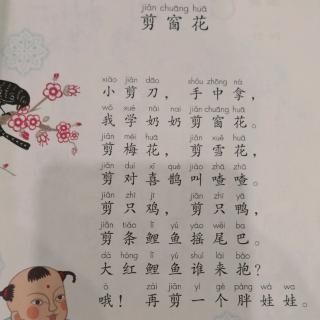 jiǎn chuāng huā
剪窗花
xiǎo jiǎn dāo shǒu zhōng ná
小剪刀，手中拿，
wǒ xué nǎi nai jiǎn chuāng huā
我学奶奶剪窗花。
jiǎn méi huā jiǎn xuě huā
剪梅花，剪雪花，
jiǎn duì xǐ què jiào zhā zhā
剪对喜鹊叫喳喳。
jiǎn zhī jī jiǎn zhī yā
剪只鸡，剪只鸭，
jiǎn tiáo lǐ yú yáo wěi ba
剪条鲤鱼摇尾巴。
dà hóng lǐ yú shuí lái bào
大红鲤鱼谁来抱？
ò zài jiǎn yí gè pàng wá wa
哦！再剪一个胖娃娃。